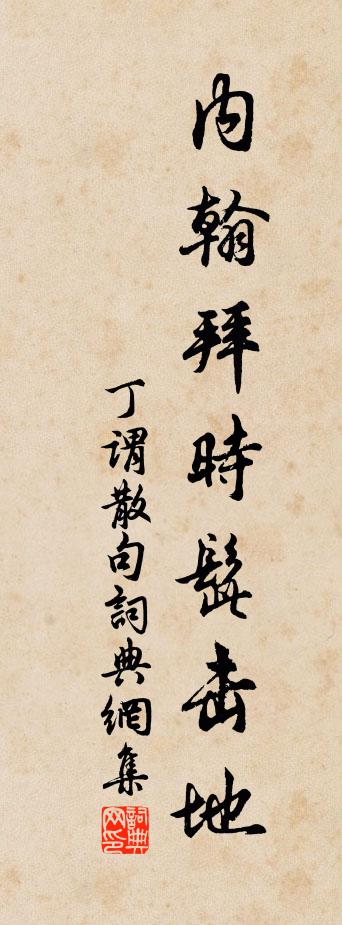 内翰拜時髭地
丁謂散句詞典網集
詞典
网印